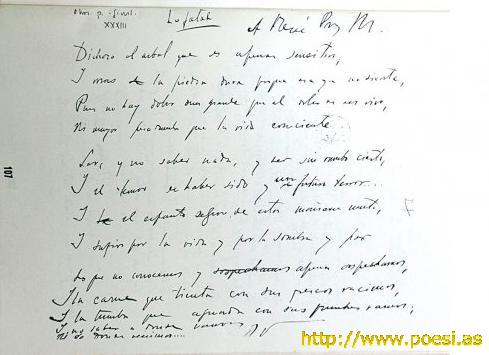 XXXIII
Lo fatal
A René Pérez M.
107
Dichoso el árbol que es apenas sensitivo,
I mas la piedra dura porque esa ya no siente,
Pues no hay dolor mas grande que el dolor de ser vivo,
Ni mayor pesadumbre que la vida conciente
Ser, y no saber nada, y ser sin rumbo cierto,
I el temor de haber sido y un futuro terror...
I el espanto seguro de estar mañana muerto,
I sufrir por la vida y por la sombra y por
Lo que no conocemos y sospechamos apenas sospechamos,
I la carne que tienta con sus frescos racimos,
I la tumba que aguarda con sus fúnebres ramos;
I no saber a donde vamos,
Ni de donde venimos....
http://www.poesi.as